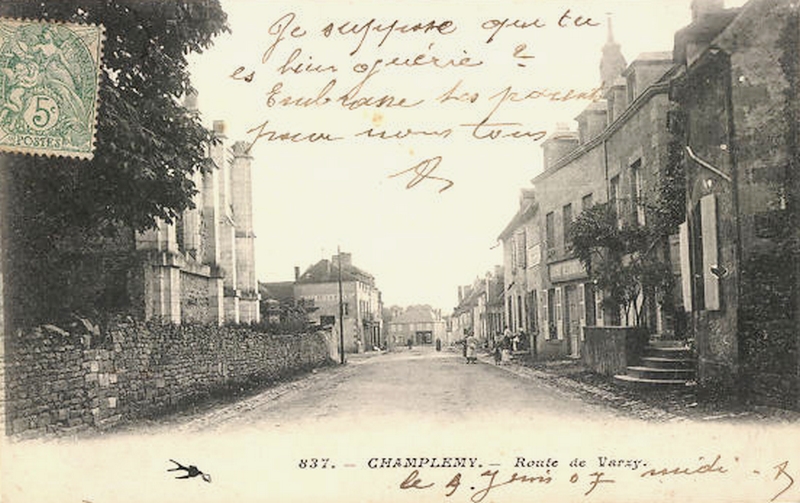 Je suppose que tu
es bien oguérie ?
Embrasse tes parents
pour nous tous
5c
POSTES
HOTEL
837. - CHAMPLEMY. - Route de Varzy.
le 9 Juin 07 midi